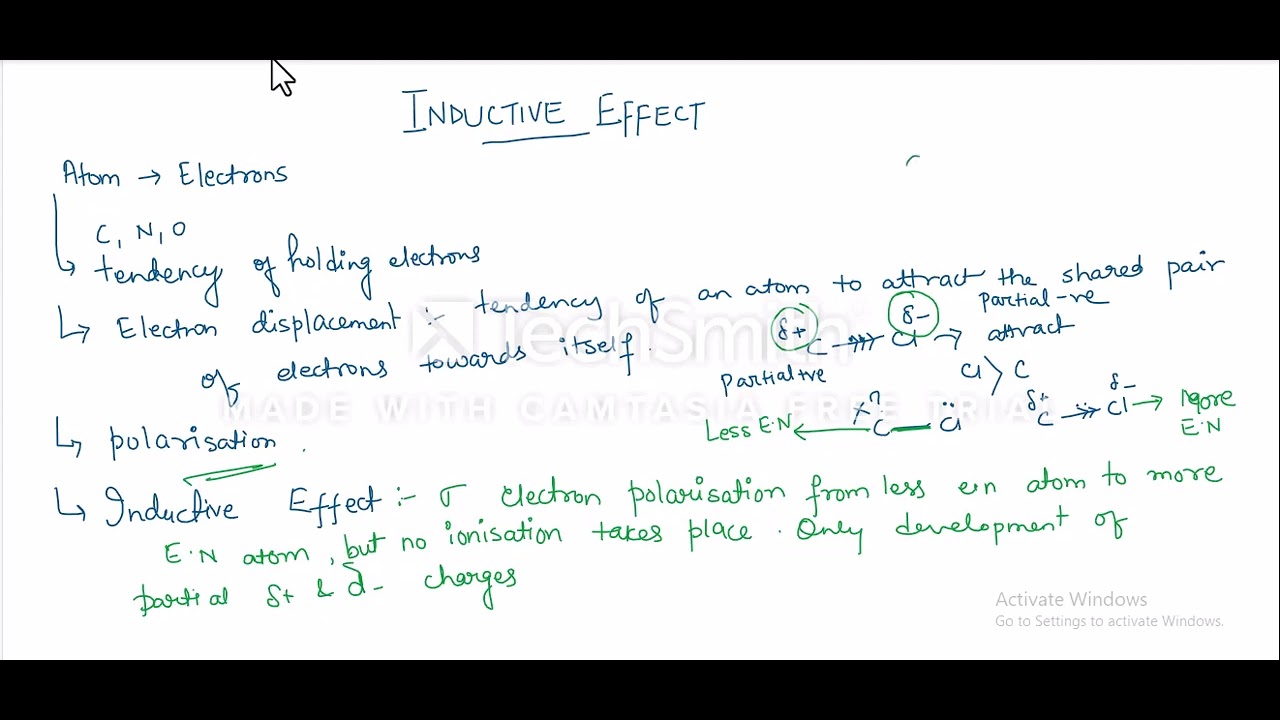 INDUCTIVE EFFECT
Atom → Electrons
C, N, O
↳ tendency of holding electrons
↳ Electron displacement :- tendency of an atom to attract the shared pair
of electrons towards itself.
δ+ δ- partial -ve
C →→→ Cl → attract
partial +ve
Cl > C
Less E.N ← C — Cl
δ+ δ-
C →→→ Cl → More
E.N
↳ polarisation.
↳ Inductive Effect :- σ electron polarisation from less e.n atom to more
E.N atom, but no ionisation takes place. Only development of
partial δ+ & δ- charges
TechSmith
MADE WITH CAMTASIA FREE TRIAL
Activate Windows
Go to Settings to activate Windows.